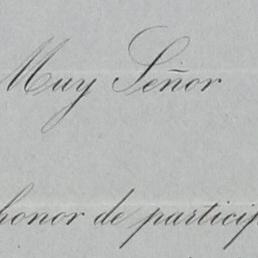 Muy Señor
honor de particip